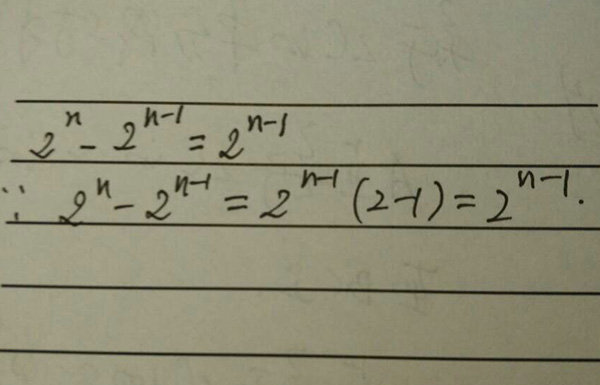 2^n - 2^{n-1} = 2^{n-1}
∵ 2^n - 2^{n-1} = 2^{n-1} (2-1) = 2^{n-1}.